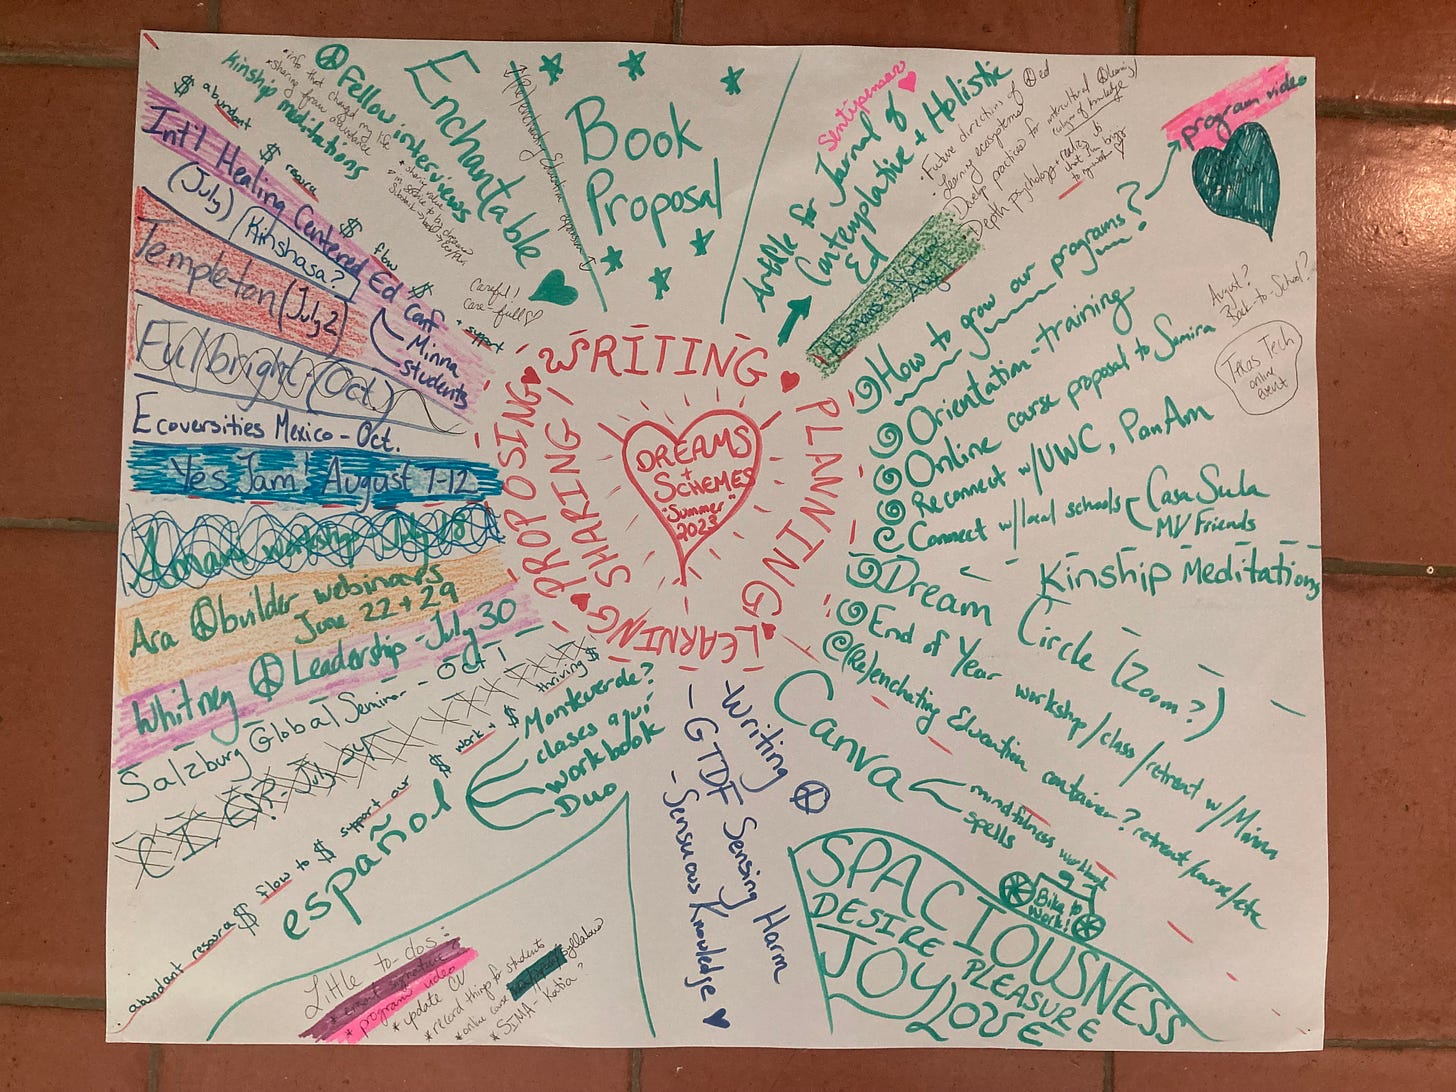 DREAMS
+
SCHEMES
"Summer"
2023
WRITING
PLANNING
LEARNING
SHARING
PROPOSING
Book
Proposal
Sentipensar
Article for Journal of
Contemplative + Holistic
Ed
Future directions of ☮ ed
Learning ecosystems
Develop practices for intercultural ☮ learning/
Depth psychology +
Humans & Nature
program video
How to grow our programs?
Orientation-training
Online course proposal to Samira
Reconnect w/UWC, PanAm
Connect w/local schools
Casa Sula
MV Friends
August?
Back-to-School?
Texas Tech
online
event
Kinship Meditations
Dream Circle (Zoom?)
End of Year workshop/class/retreat w/Minna
(Re)enchanting Education container? retreat/course/etc
Canva
mindfulness workbook
spells
Bike to
Work!
SPACIOUSNESS
DESIRE PLEASURE
JOY LOVE
Writing ☮
- GTDF Sensing Harm
- Sensuous Knowledge
español
Monteverde?
clases aquí
workbook
Duo
Little to-dos:
* email signature
* program video
* update CV
* record things for students
* online course syllabus
* SIMA - Katia?
abundant resource $ flow to $ support our $ work + $ thriving $
CICP - July
Salzburg Global Seminar - Oct 1
Whitney ☮ Leadership - July 30
Asa ☮builder webinars
June 22 + 29
workshop July 18
Yes Jam August 7-12
Ecoversities Mexico - Oct.
Fulbright (Oct.)
Templeton (July 2)
Int'l Healing Centered Ed Conf
(July) (Kinshasa?
Minna
students
$ abundant $ $ flow $ + support
☮ Fellow interviews
Kinship meditations
* info that changed my life
* sharing from abundance
* sharing value
Enchantable
(Re)enchanting Education
Careful!
care-full